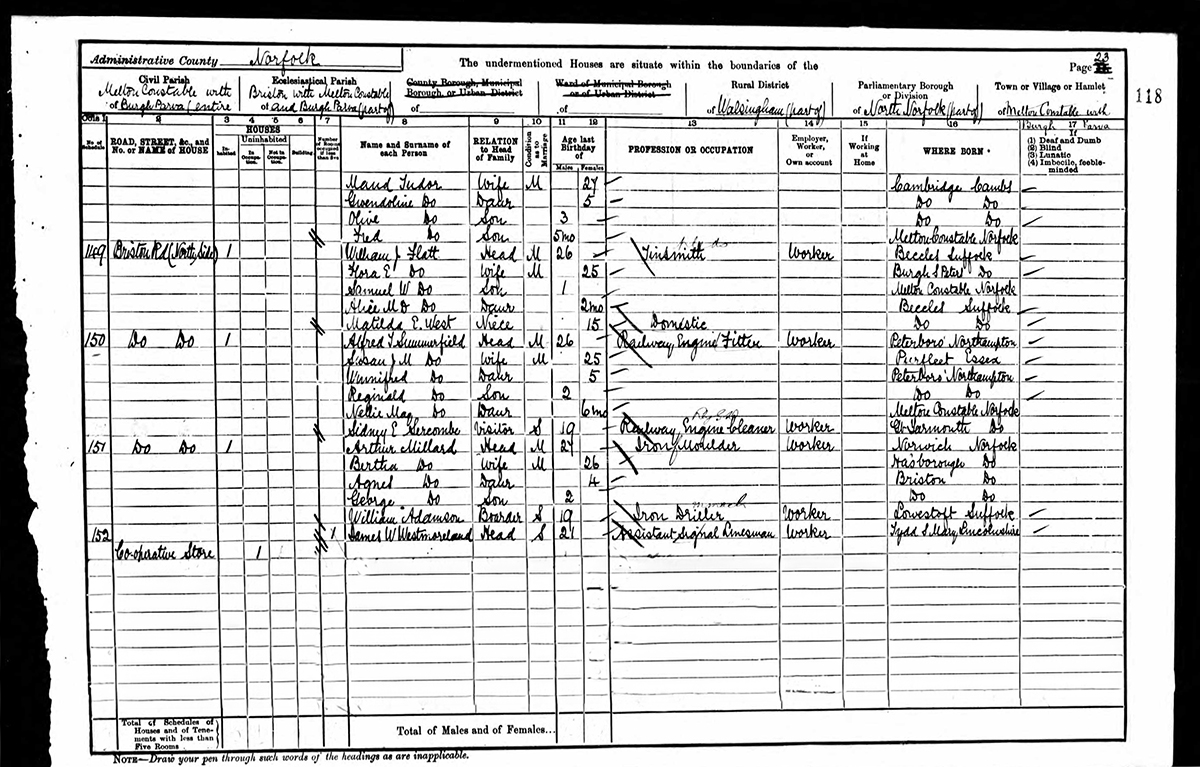 Administrative County Norfolk
The undermentioned Houses are situate within the boundaries of the
Page 23
118
Civil Parish
Melton Constable with
of Burgh Parva (entire
Ecclesiastical Parish
Briston with Melton Constable
of and Burgh Parva (part of)
County Borough, Municipal
Borough, or Urban District
of
Ward of Municipal Borough
or of Urban District
of
Rural District
of Walsingham (part of)
Parliamentary Borough
or Division
of North Norfolk (part of)
Town or Village or Hamlet
of Melton Constable with
Burgh Parva
Cols 1 2 3 4 5 6 7 8 9 10 11 12 13 14 15 16 17
No. of Schedule
ROAD, STREET, &c., and No. or NAME of HOUSE
HOUSES
Inhabited
Uninhabited
In Occupation.
Not in Occupation.
Building
Number of Rooms occupied if less than five
Name and Surname of each Person
RELATION to Head of Family
Condition as to Marriage
Age last Birthday of
Males Females
PROFESSION OR OCCUPATION
Employer, Worker, or Own account
If Working at Home
WHERE BORN
If
(1) Deaf and Dumb
(2) Blind
(3) Lunatic
(4) Imbecile, feeble-minded
Maud Tudor Wife M 27 Cambridge Cambs
Gwendoline Do Daur 5 Do Do
Olive Do Son 3 Do Do
Fred Do Son 5mo Melton Constable Norfolk
149 Briston Rd (North Side) 1 William J. Flatt Head M 26 Tinsmith Worker Beccles Suffolk
Flora E. Do Wife M 25 Burgh S Peter Do
Samuel W Do Son 1 Melton Constable Norfolk
Alice M. Do Daur 2mo Beccles Suffolk
Matilda E. West Niece 15 Domestic Do Do
150 Do Do 1 Alfred T Summerfield Head M 26 Railway Engine Fitter Worker Peterboro' Northampton
Susan J. M Do Wife M 25 Purfleet Essex
Winnifred Do Daur 5 Peterboro' Northampton
Reginald Do Son 2 Do Do
Nellie May Do Daur 6mo Melton Constable Norfolk
Sidney E. Sercombe Visitor S 19 Railway Engine Cleaner Worker Gt Yarmouth Do
151 Do Do 1 Arthur Millard Head M 27 Iron Moulder Worker Norwich Norfolk
Bertha Do Wife M 26 Hasborough Do
Agnes Do Daur 4 Briston Do
George Do Son 2 Do Do
William Adamson Boarder S 19 Iron Driller Worker Lowestoft Suffolk
152 1 James W Westmoreland Head S 21 Assistant Signal Linesman Worker Tydd S Mary, Lincolnshire
Co-operative Store 1
Total of Schedules of Houses and of Tenements with less than Five Rooms
Total of Males and of Females...
NOTE—Draw your pen through such words of the headings as are inapplicable.